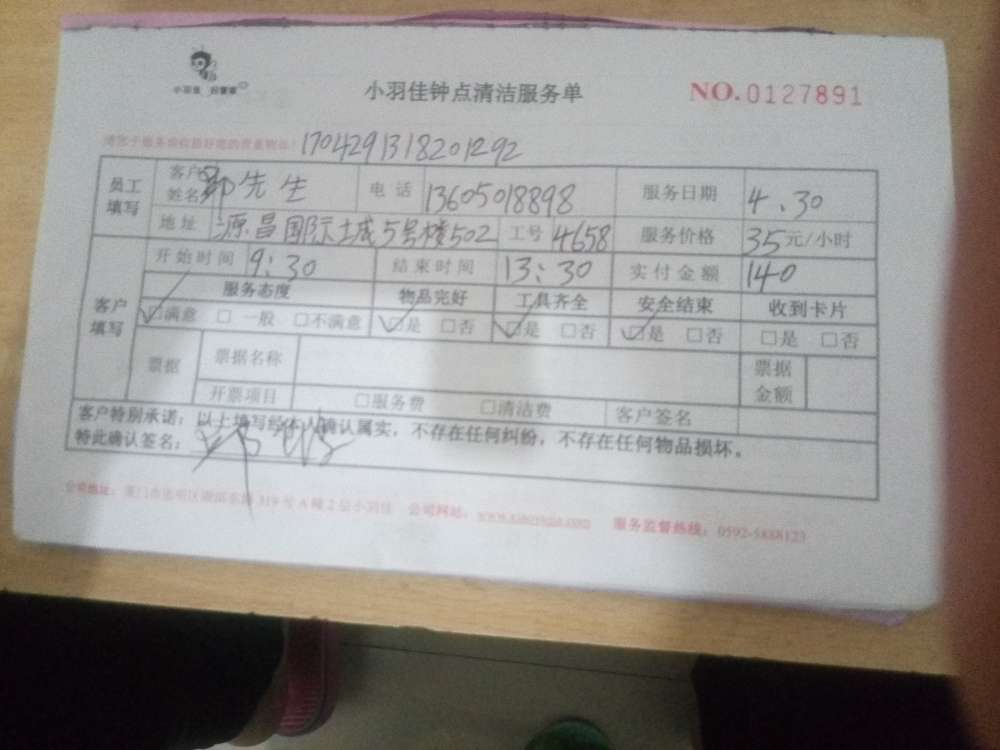 小羽佳 好管家
小羽佳钟点清洁服务单
NO.0127891
1704291318201292
员工填写 客户姓名 郭先生 电话 13605018898 服务日期 4.30
地址 源昌国际城5号楼502 工号 4658 服务价格 35元/小时
客户填写 开始时间 9:30 结束时间 13:30 实付金额 140
服务态度 物品完好 工具齐全 安全结束 收到卡片
☑满意 □一般 □不满意 ☑是 □否 ☑是 □否 ☑是 □否 □是 □否
票据 票据名称 票据金额
开票项目 □服务费 □清洁费 客户签名
客户特别承诺:以上填写经本人确认属实,不存在任何纠纷,不存在任何物品损坏。
特此确认签名:
公司地址:厦门市思明区湖滨东路319号A幢2层小羽佳 公司网站: 服务监督热线:0592-5888123